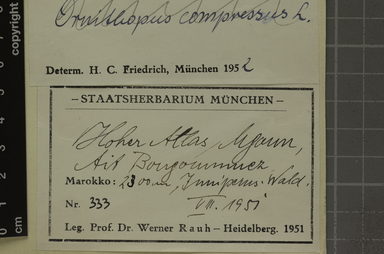 Ornithopus compressus L.
Determ. H. C. Friedrich, München 1952
– STAATSHERBARIUM MÜNCHEN –
Hoher Atlas, Mgoun,
Ait Bougoummez
Marokko: 2300 m, Juniperus-Wald.
Nr. 333 VII. 1951
Leg. Prof. Dr. Werner Rauh – Heidelberg. 1951
copyright
cm
0
1
2
3
4
5